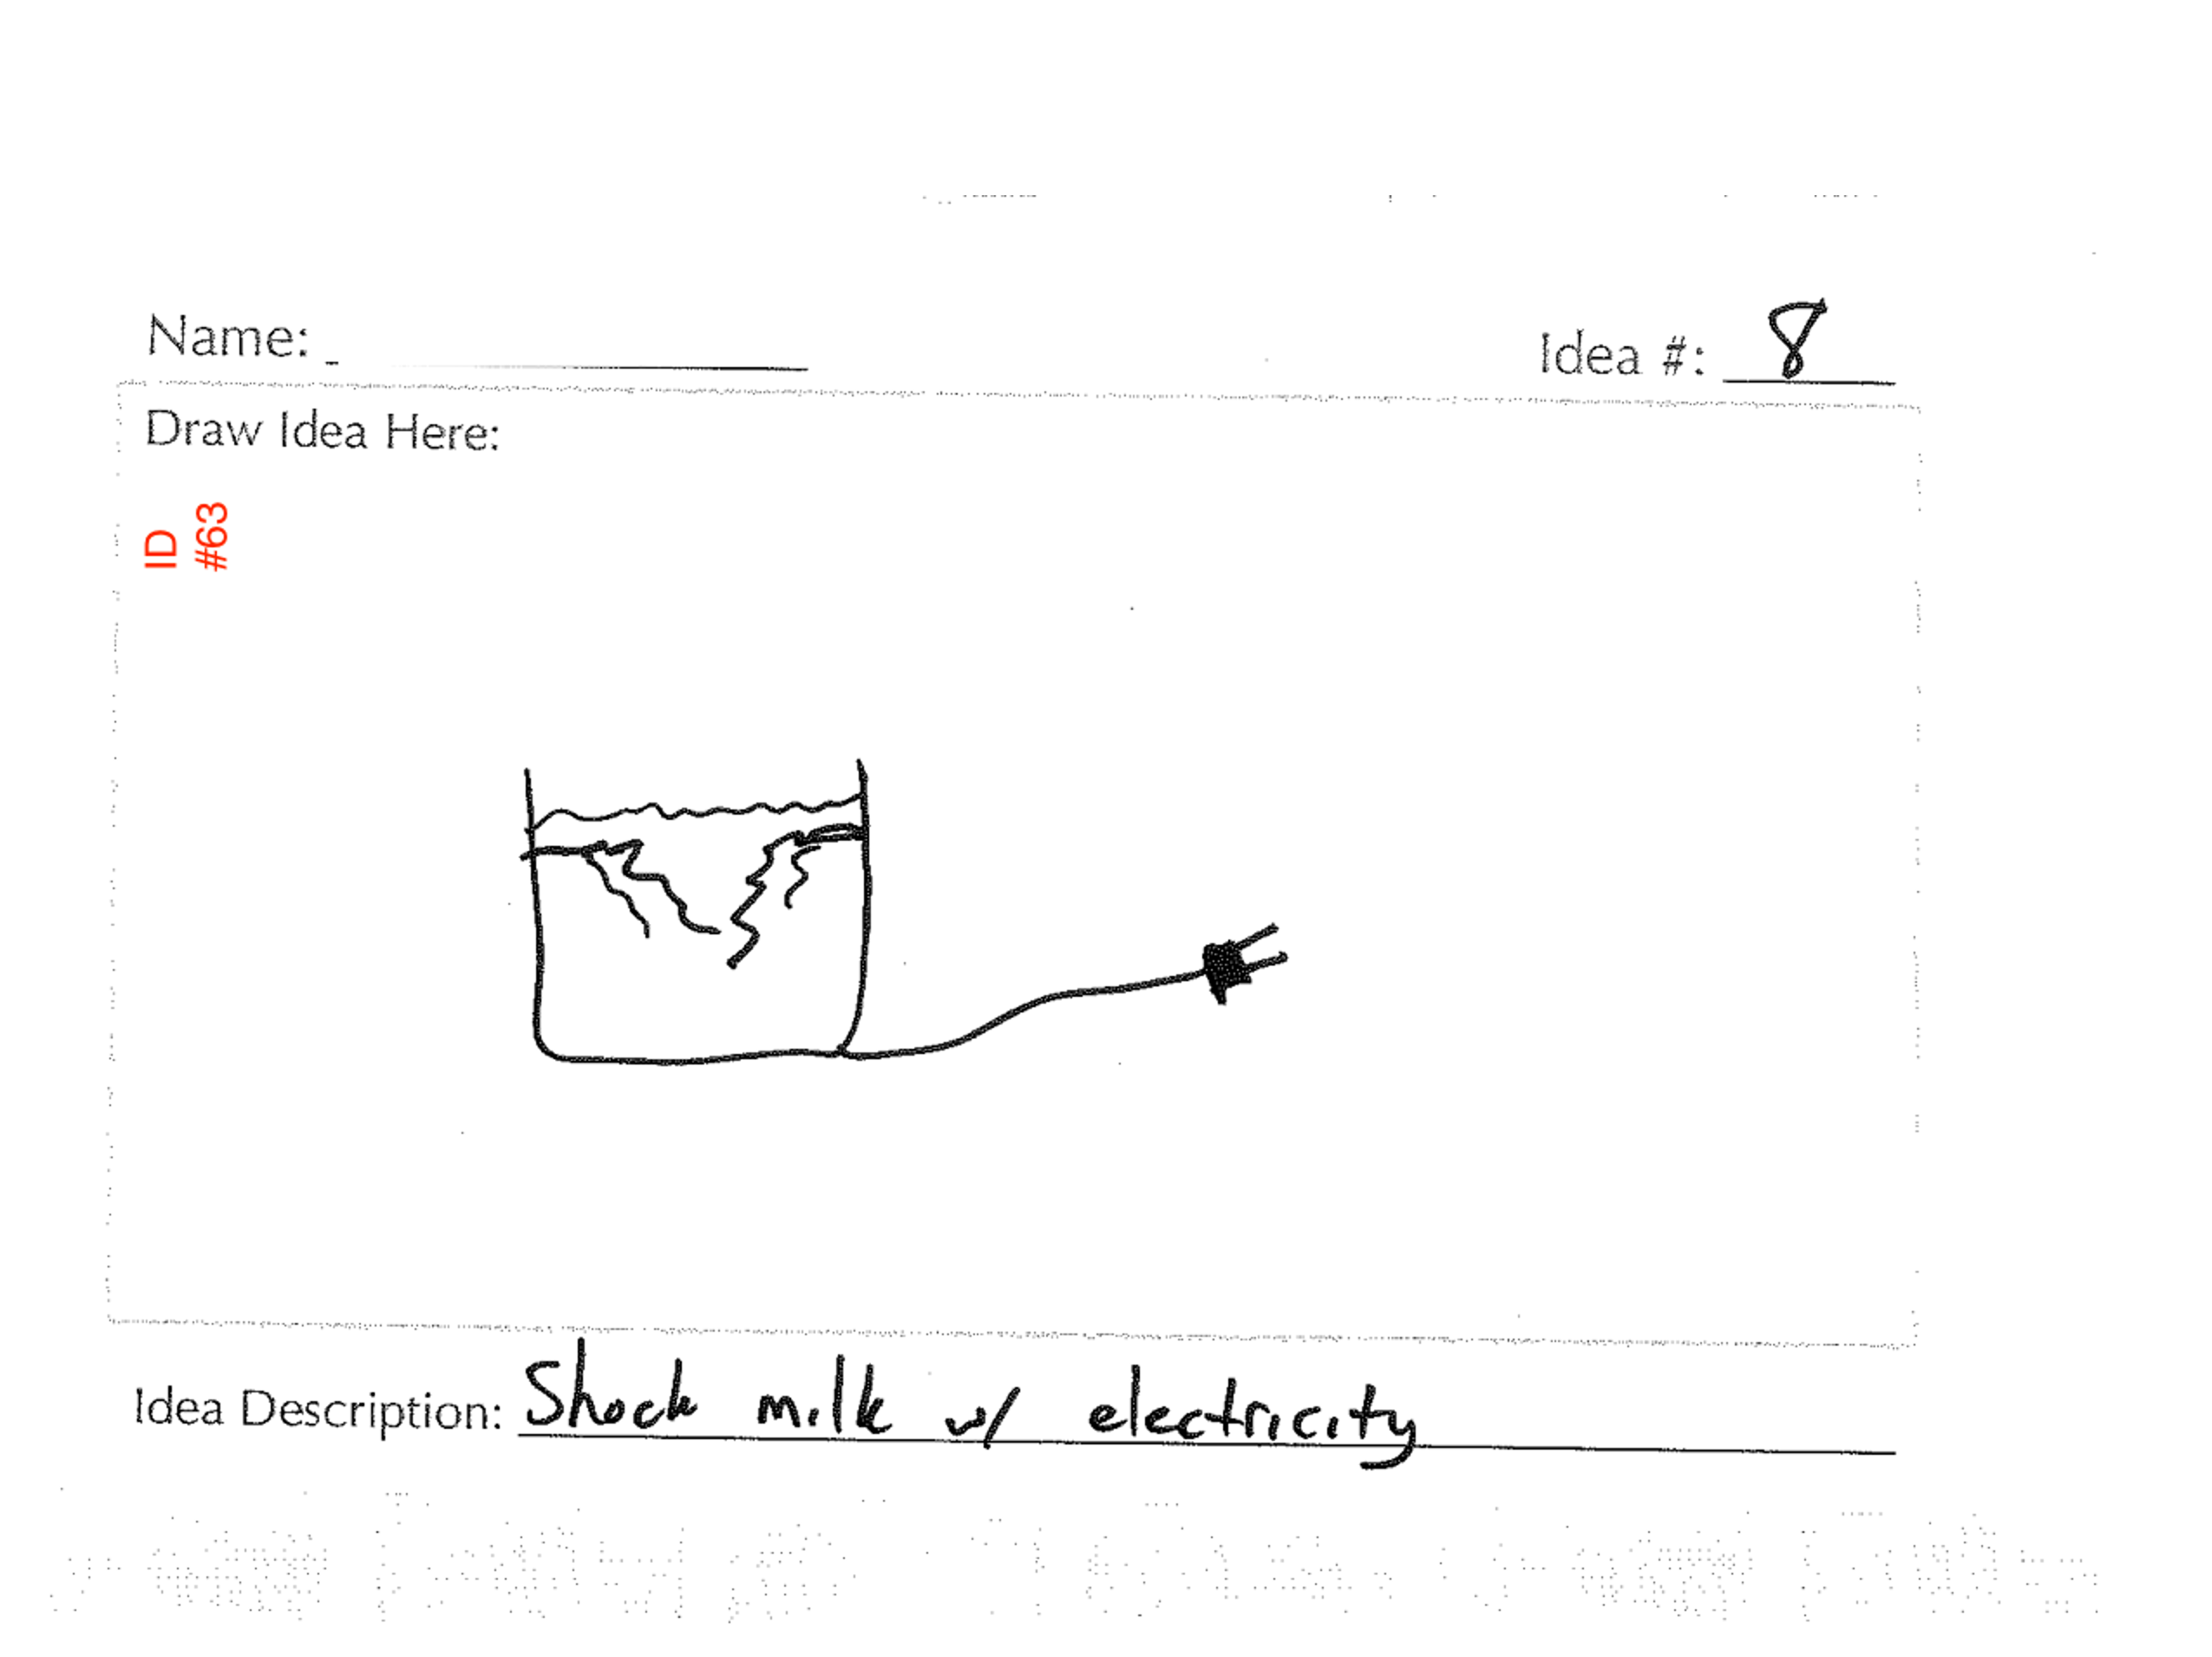 Name:
Idea #: 8
Draw Idea Here:
ID
#63
Idea Description: Shock milk w/ electricity